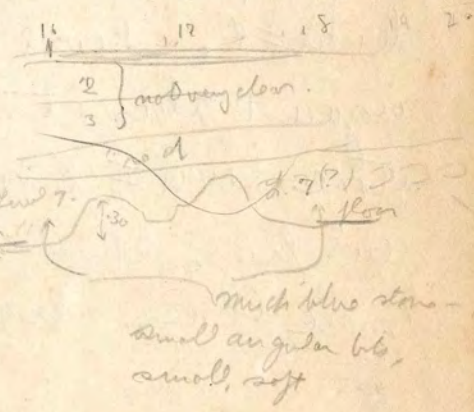 16 17 18 19
2
3 } not very clear.
d
level 7. L. 7 (?)
.30 floor
much blue stone -
small angular bits,
small, soft